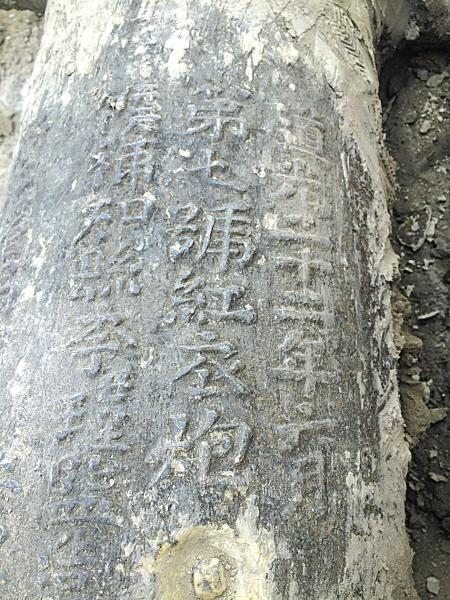 道光二十二年六月
第七號紅衣炮
補知縣李監造